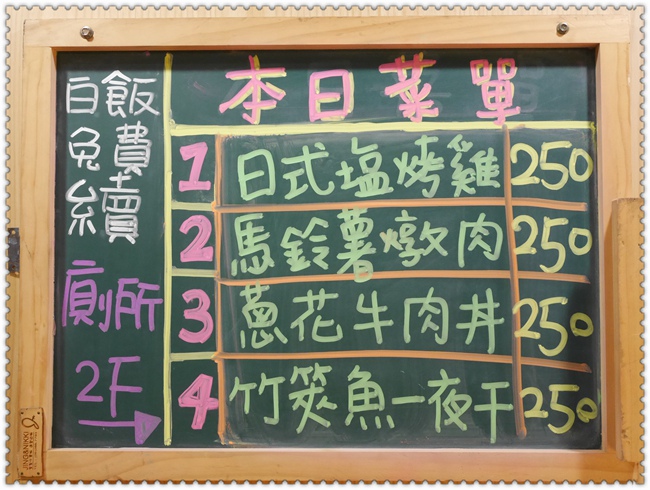 本日菜單
1 日式塩烤雞 250
2 馬鈴薯燉肉 250
3 蔥花牛肉丼 250
4 竹筴魚一夜干 250
白飯
免費
續
廁所
2F